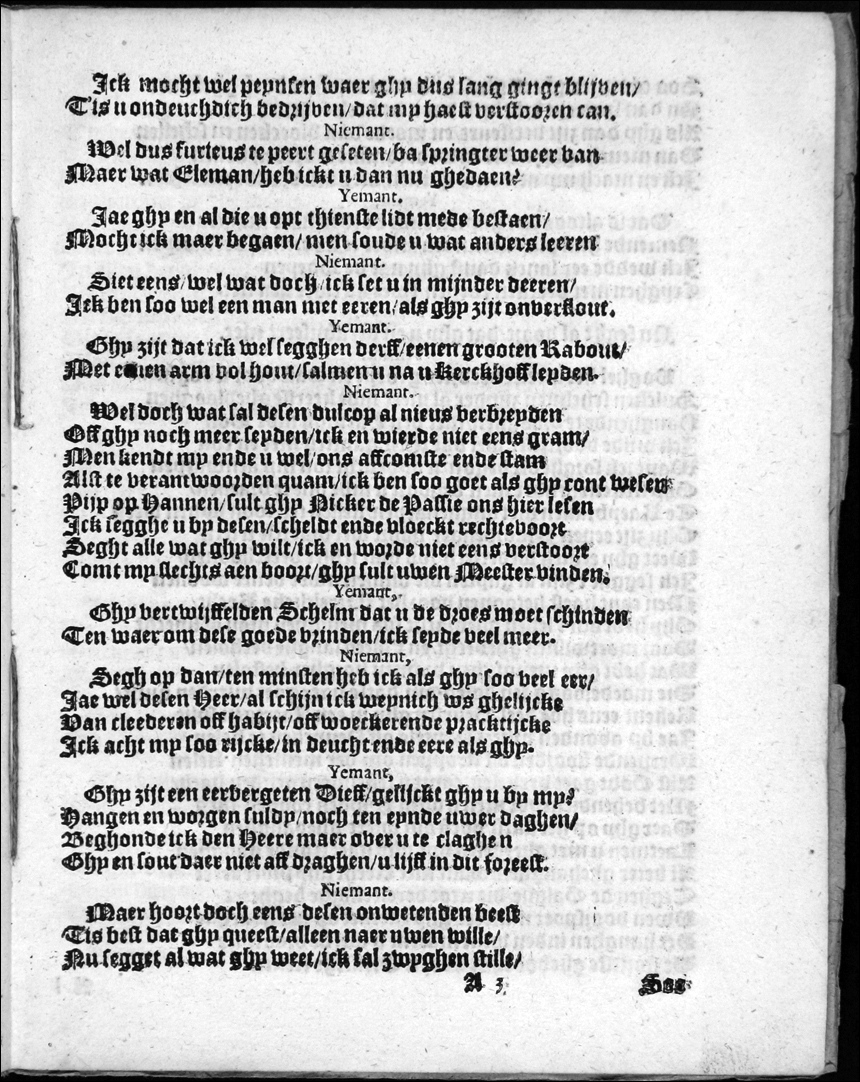 Ick mocht wel peynsen waer ghy dus lang gingt blijven/
Tis u ondeuchdich bedrijven/dat my haest verstooren can.
Niemant.
Wel dus furieus te peert geseten/ba springter weer van
Maer wat Eleman/heb ickt u dan nu ghedaen?
Yemant.
Jae ghy en al die u opt thienste lidt mede bestaen/
Mocht ick maer begaen/men soude u wat anders leeren
Niemant.
Siet eens/wel wat doch/ick set u in mijnder deeren/
Ick ben soo wel een man met eeren/als ghy zijt onverstout.
Yemant.
Ghy zijt dat ick wel segghen derff/eenen grooten Rabout/
Met eenen arm vol hout/salmen u na u kerckhoff leyden.
Niemant.
Wel doch wat sal desen dulcop al nieus verbreyden
Off ghy noch meer seyden/ick en wierde niet eens gram/
Men kendt my ende u wel/ons affcomste ende stam
Alst te verantwoorden quam/ick ben soo goet als ghy cont wesen
Pijp op Hannen/sult ghy Nicker de Passie ons hier lesen
Ick segghe u by desen/scheldt ende vloeckt rechtevoort
Seght alle wat ghy wilt/ick en worde niet eens verstoort
Comt my slechts aen boort/ghy sult uwen Meester vinden.
Yemant,
Ghy vertwijffelden Schelm dat u de droes moet schinden
Ten waer om dese goede vrinden/ick seyde veel meer.
Niemant,
Segh op dan/ten minsten heb ick als ghy soo veel eer/
Jae wel desen Heer/al schijn ick weynich ws ghelijcke
Van cleederen off habijt/off woeckerende practijcke
Ick acht my soo rijcke/in deucht ende eere als ghy.
Yemant,
Ghy zijt een eervergeten Dieff/gelijckt ghy u by my?
Hangen en worgen suldy/noch ten eynde uwer daghen/
Beghonde ick den Heere maer over u te claghen
Ghy en sout daer niet aff draghen/u lijff in dit foreest.
Niemant.
Maer hoort doch eens desen onwetenden beest
Tis best dat ghy queest/alleen naer uwen wille/
Nu segget al wat ghy weet/ick sal zwyghen stille/
A 3